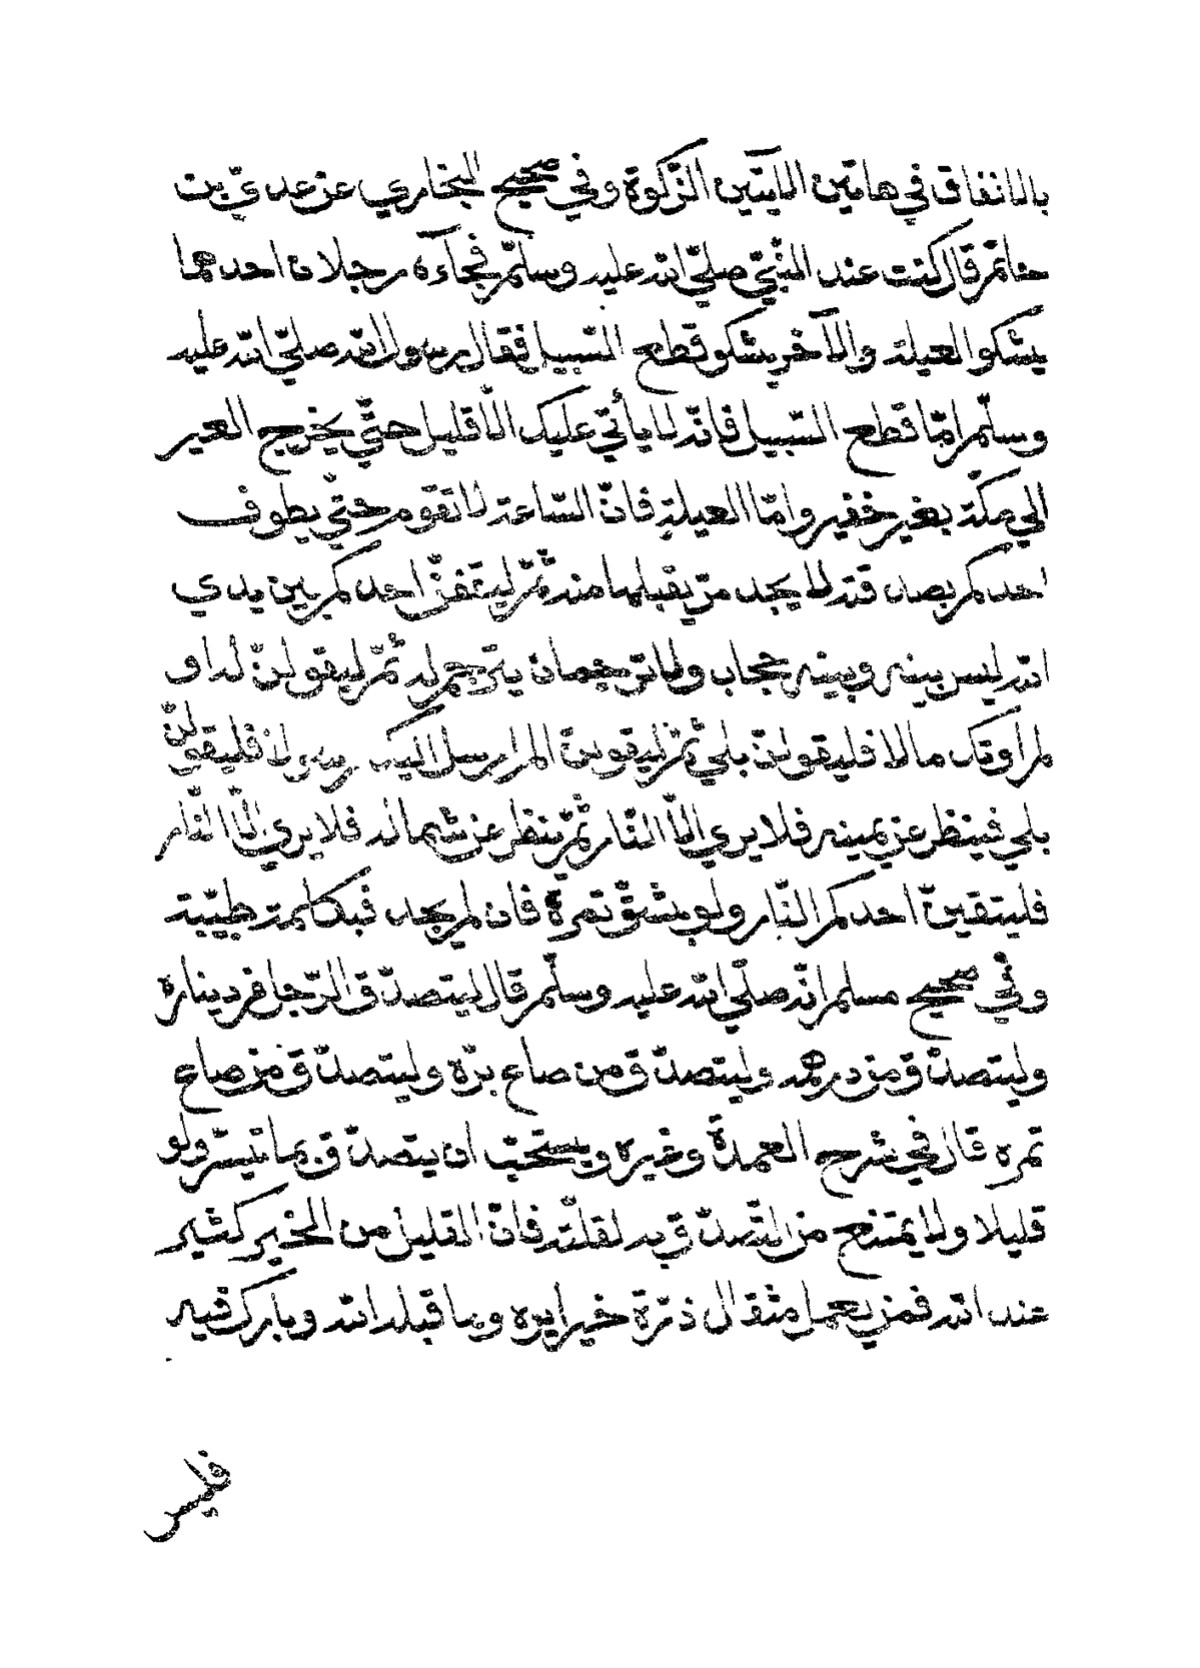 بالانفاق في هاتين الايتين الزّكوة وفي صحيح البخاري عن عديّ بن
حاتم قال كنت عند النّبيّ صلّي الله عليه وسلّم فجآءه رجلان احدهما
يشكو العيلة والآخر يشكو قطع السّبيل فقال رسول الله صلّي الله عليه
وسلّم امّا قطع السّبيل فانّه لا يأتي عليك الّا قليل حتّي يخرج العير
الي مكّة بغير خفير وامّا العيلة فانّ السّاعة لا تقوم حتّي يطوف
احدكم بصدقته لا يجد من يقبلها منه ثمّ ليقفنّ احدكم بين يدي
الله ليس بينه وبينه حجاب ولا ترجمان يترجم له ثمّ ليقولنّ له او
لم اوتك مالا فليقولنّ بلي ثمّ ليقولنّ الم ارسل اليك رسولا فليقولنّ
بلي فينظر عن يمينه فلا يري الّا النّار ثمّ ينظر عن شماله فلا يري الّا النّار
فليتقينّ احدكم النّار ولو بشقّ تمرة فان لم يجد فبكلمة طيّبة
وفي صحيح مسلم انّه صلّي الله عليه وسلّم قال ليتصدّق الرّجل من ديناره
وليتصدّق من درهمه وليتصدّق من صاع برّه وليتصدّق من صاع
تمره قال في شرح العمدة وغيره ويستحبّ ان يتصدّق بما تيسّر ولو
قليلا ولا يمتنع من التّصدّق به لقلّته فانّ القليل من الخير كثير
عند الله فمن يعمل مثقال ذرّة خيرا يره وما قبله الله وبارك فيه
فليس